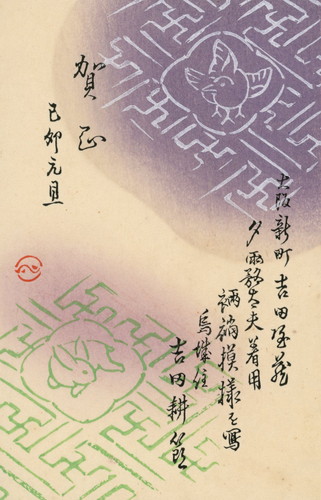 賀正
己卯元旦
大阪新町吉田屋蔵
夕霧太夫着用
裲襠摸様を寫
烏城住
吉田耕